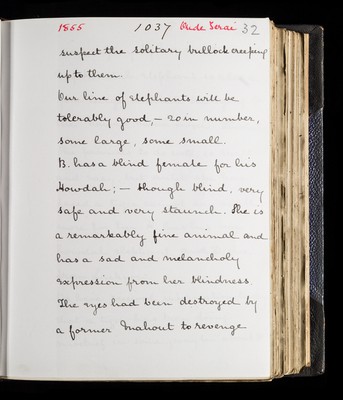 1855 1037 Oude Terai 32
suspect the solitary bullock creeping
up to them.
Our line of Elephants will be
tolerably good, – 20 in number,
some large, some small.
B. has a blind female for his
Howdah; – though blind, very
safe and very staunch. She is
a remarkably fine animal and
has a sad and melancholy
expression from her blindness
The eyes had been destroyed by
a former Mahout to revenge